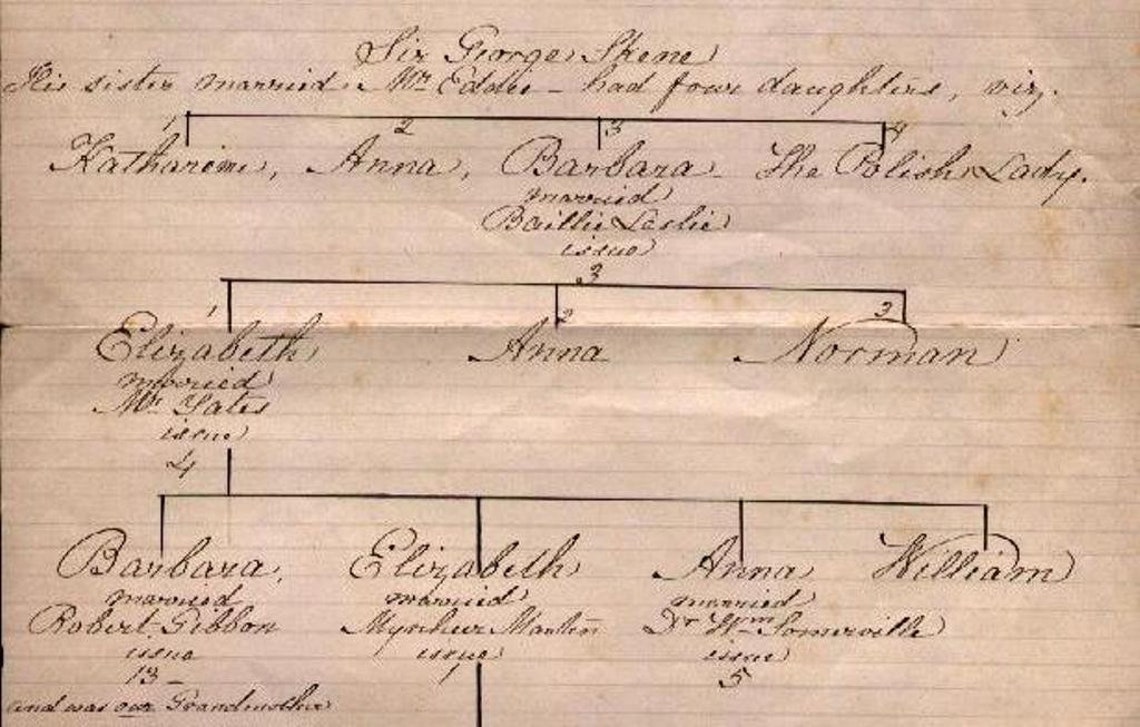 Sir George Skene
His sister married Mr Eddie - had four daughters, viz.
1 2 3 4
Katharine, Anna, Barbara - The Polish Lady.
married
Baillie Leslie
issue
3
1 2 3
Elizabeth Anna Norman
married
Mr Yates
issue
4
Barbara, Elizabeth Anna William
married married married
Robert Gibbon Mynheer Dr Wm Somerville
issue issue issue
13 - 1 5
and was our Grandmother